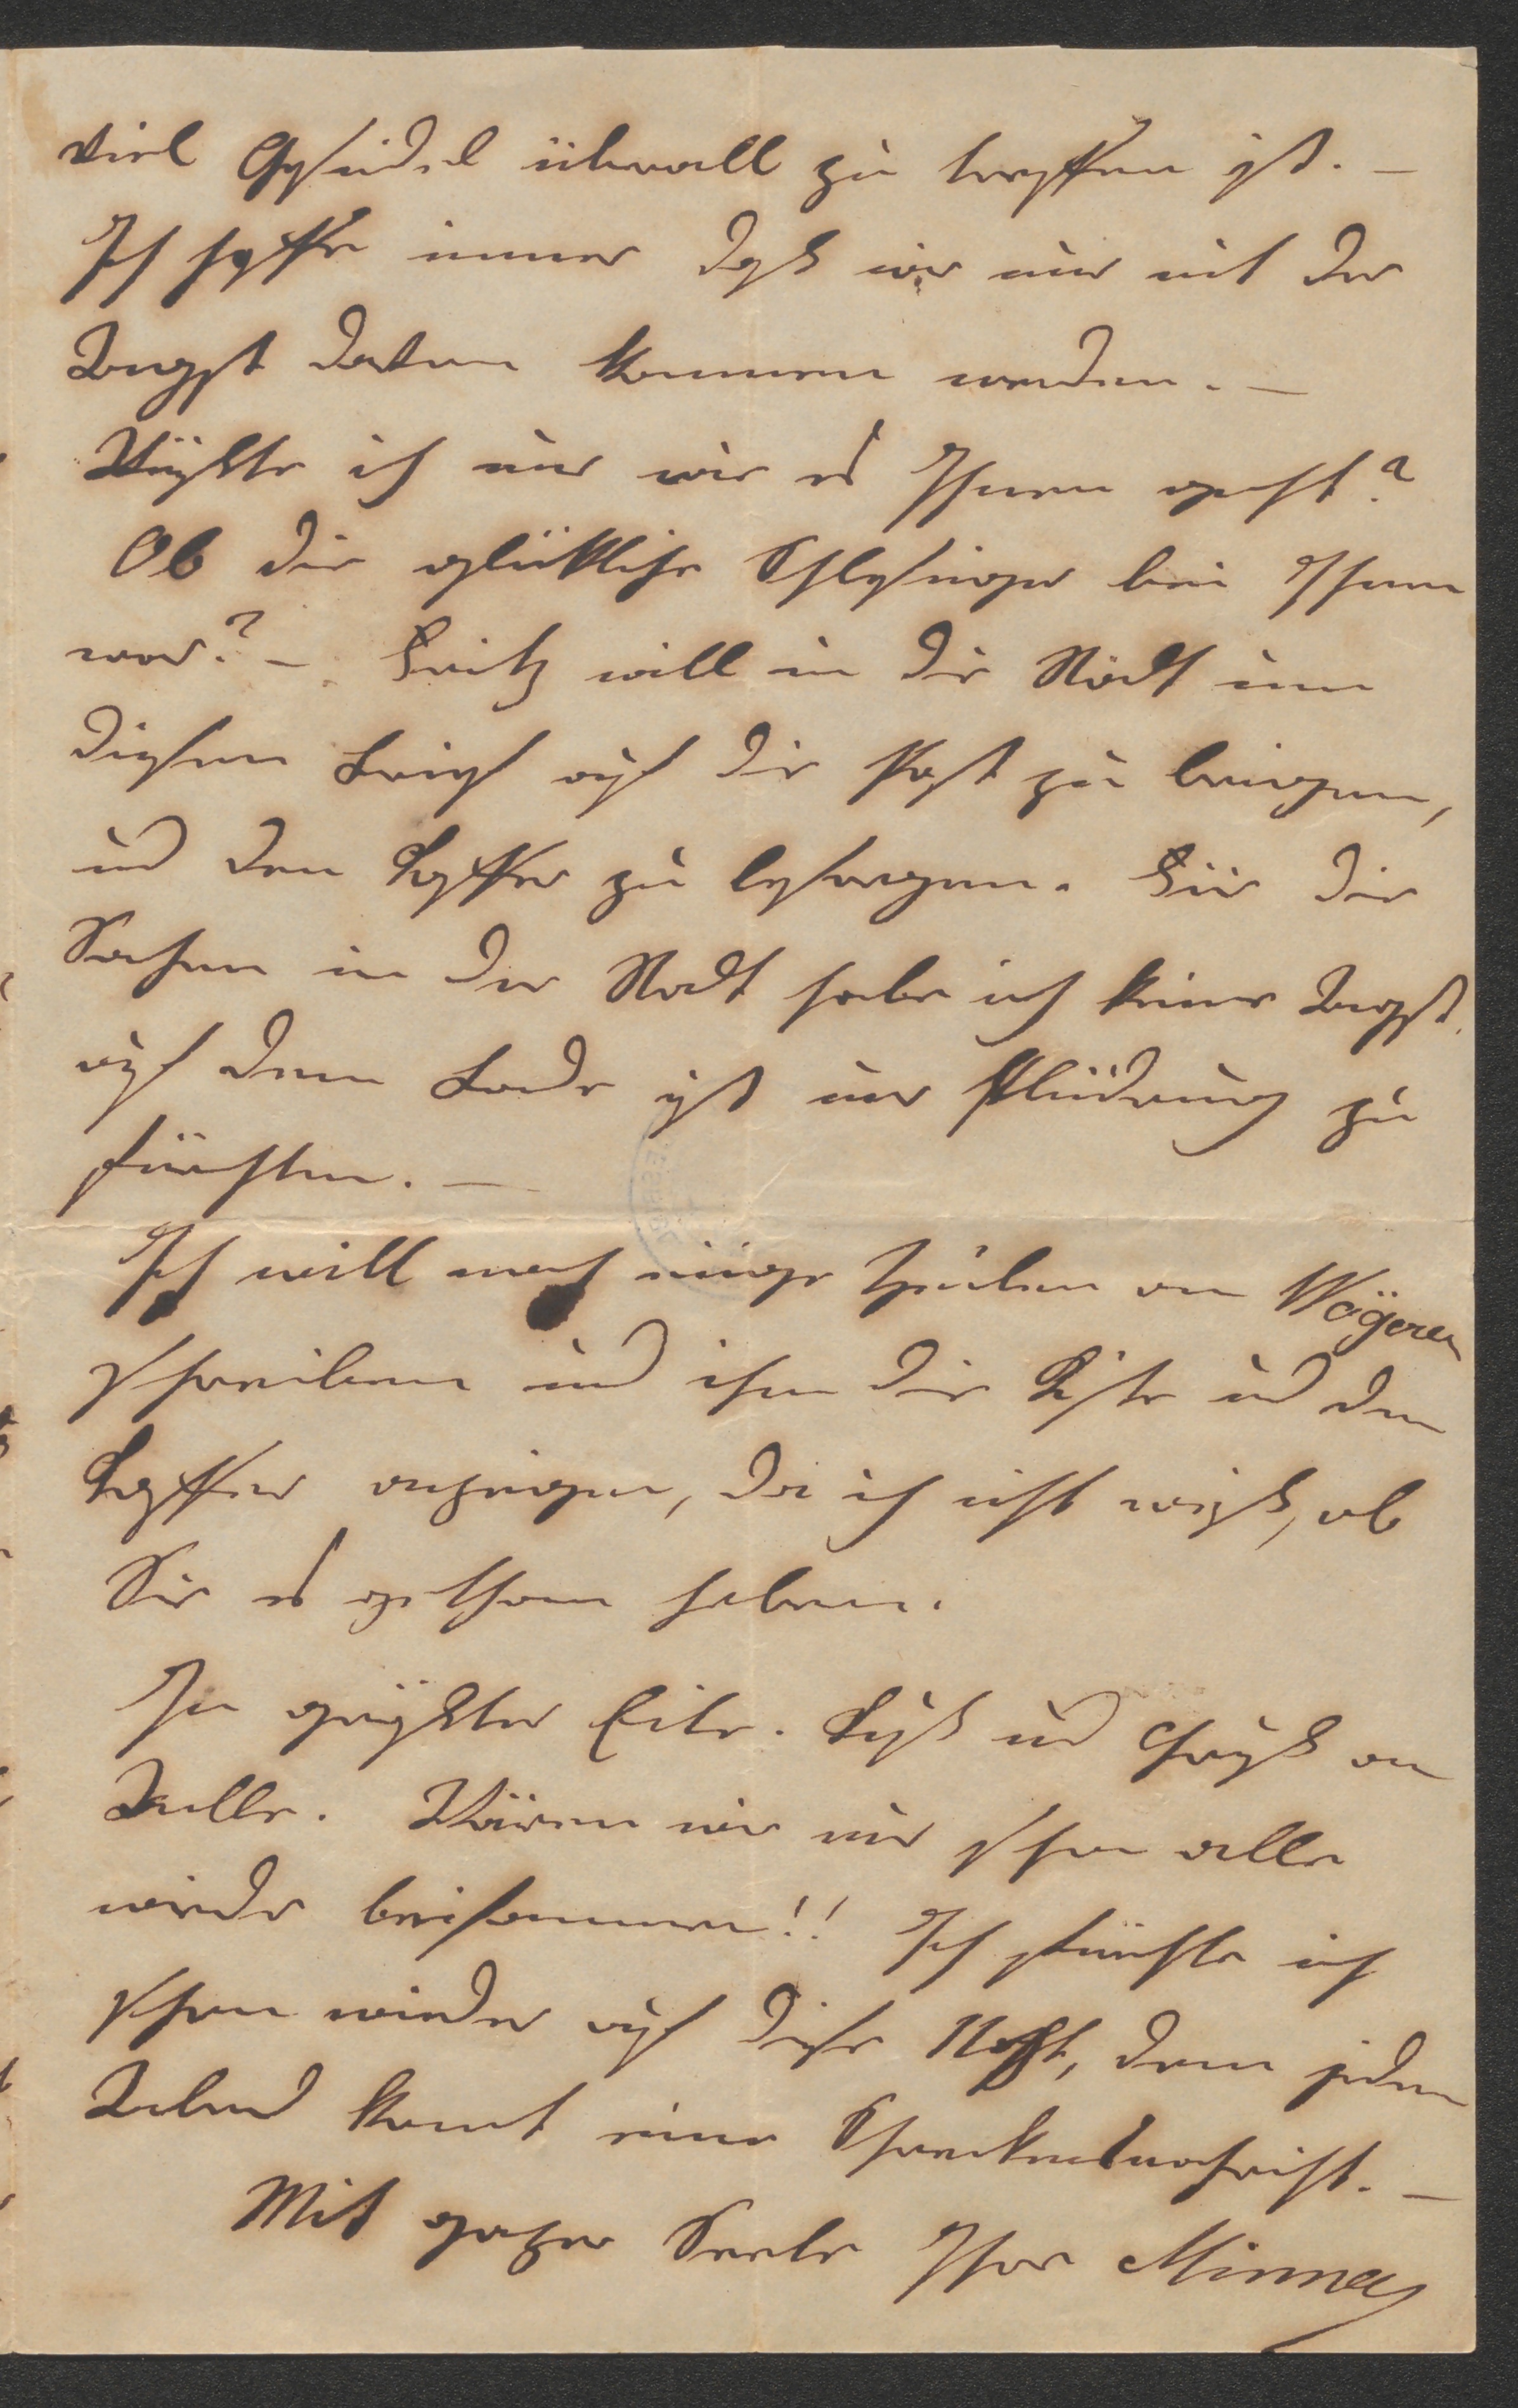 viel Gesindel überall zu treffen ist. —
Ich hoffe immer daß wir nur mit der
Angst davon kommen werden. —
Wüßte ich nur wie es Ihnen geht?
Ob die glückliche Schlesinger bei Ihnen
war? — Fritz will in die Stadt um
diesen Brief auf die Post zu bringen,
und den Koffer zu besorgen. Für die
Sachen in der Stadt habe ich keine Angst,
auf dem Lande ist nur Plünderung zu
fürchten. —
Ich will noch einige Zeilen an Wägeren
schreiben und ihm die Kiste und den
Koffer anzeigen, da ich nicht weiß, ob
Sie es gethan haben.
In größter Eile. Kuß und Gruß an
Alle. Wären wir nur schon alle
wieder beisammen!! Ich fürchte mich
schon wieder auf diese Nacht, denn jeden
Abend kommt eine Schreckensnachricht. —
Mit ganzer Seele Ihre Minna